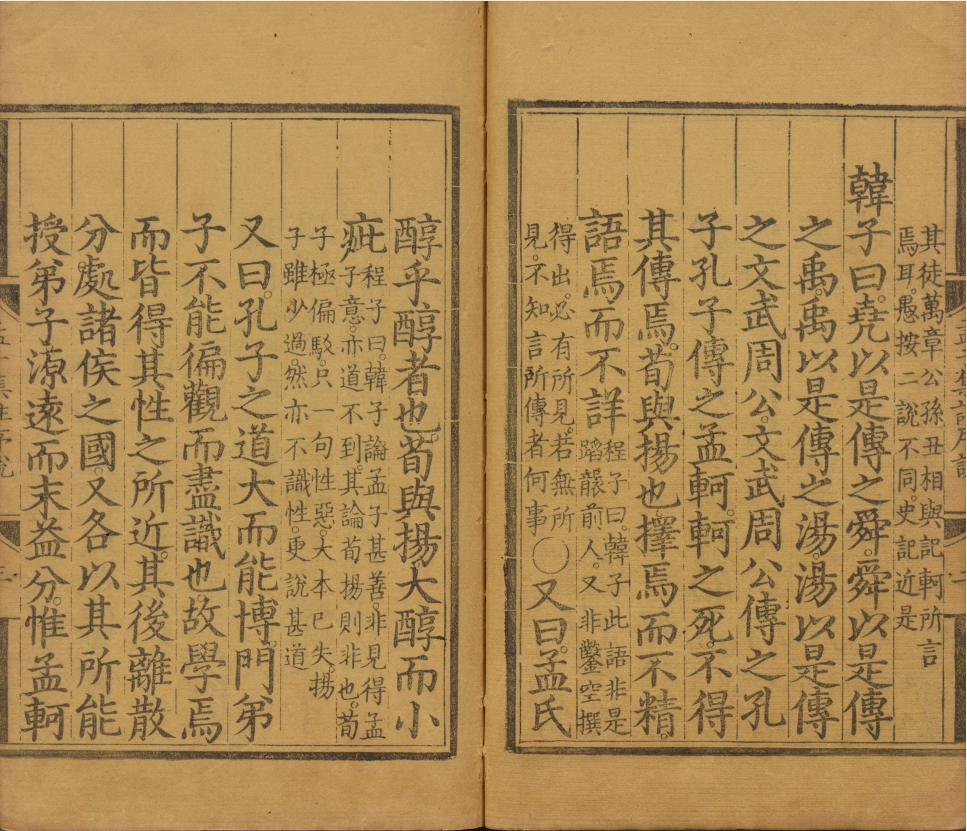 其徒萬章公孫丑相與記軻所言
焉耳。愚按二說不同。史記近是
韓子曰。堯以是傳之舜。舜以是傳
之禹禹以是傳之湯。湯以是傳
之文武周公。文武周公傳之孔
子孔子傳之孟軻。軻之死。不得
其傳焉。荀與揚也。擇焉而不精。
語焉而不詳
程子曰。韓子此語。非是
蹈襲前人。又非鑿空撰
得出。必有所見。若無所
見。不知言所傳者何事
〇又曰。孟氏
醇乎醇者也。荀與揚。大醇而小
疵
程子曰。韓子論孟子甚善。非見得孟
子意。亦道不到。其論荀揚則非也。荀
子極偏駁。只一句性惡。大本已失。揚
子雖少過。然亦不識性。更說甚道
又曰。孔子之道大而能博。門弟
子不能徧觀而盡識也。故學焉
而皆得其性之所近。其後離散
分處諸侯之國。又各以其所能
授弟子源遠而末益分。惟孟軻